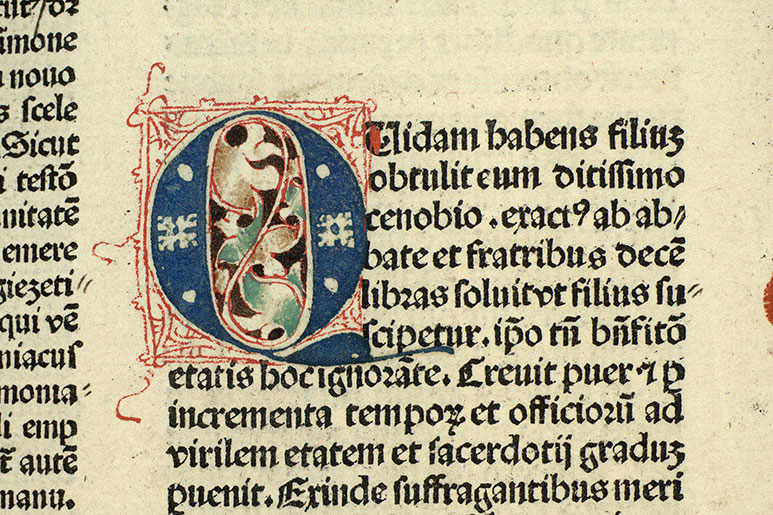 simone
nouo
s scele
Sicut
i testō
nitatē
emere
giezeti//
qui vē
niacus
monia//
li emp
t̄ autē
manu.
QUidam habens filiuꝫ
obtulit eum ditissimo
cenobio .exactꝰ ab ab//
bate et fratribus decē
libras soluit vt filius su//
scipetur. ip̄o tn̄ bn̄fitō
etatis hoc ignorāte. Creuit puer ⁊ ꝑ
incrementa tempoꝝ et officiorū ad
virilem etatem et sacerdotij graduꝫ
ꝑuenit. Exinde suffragantibus meri